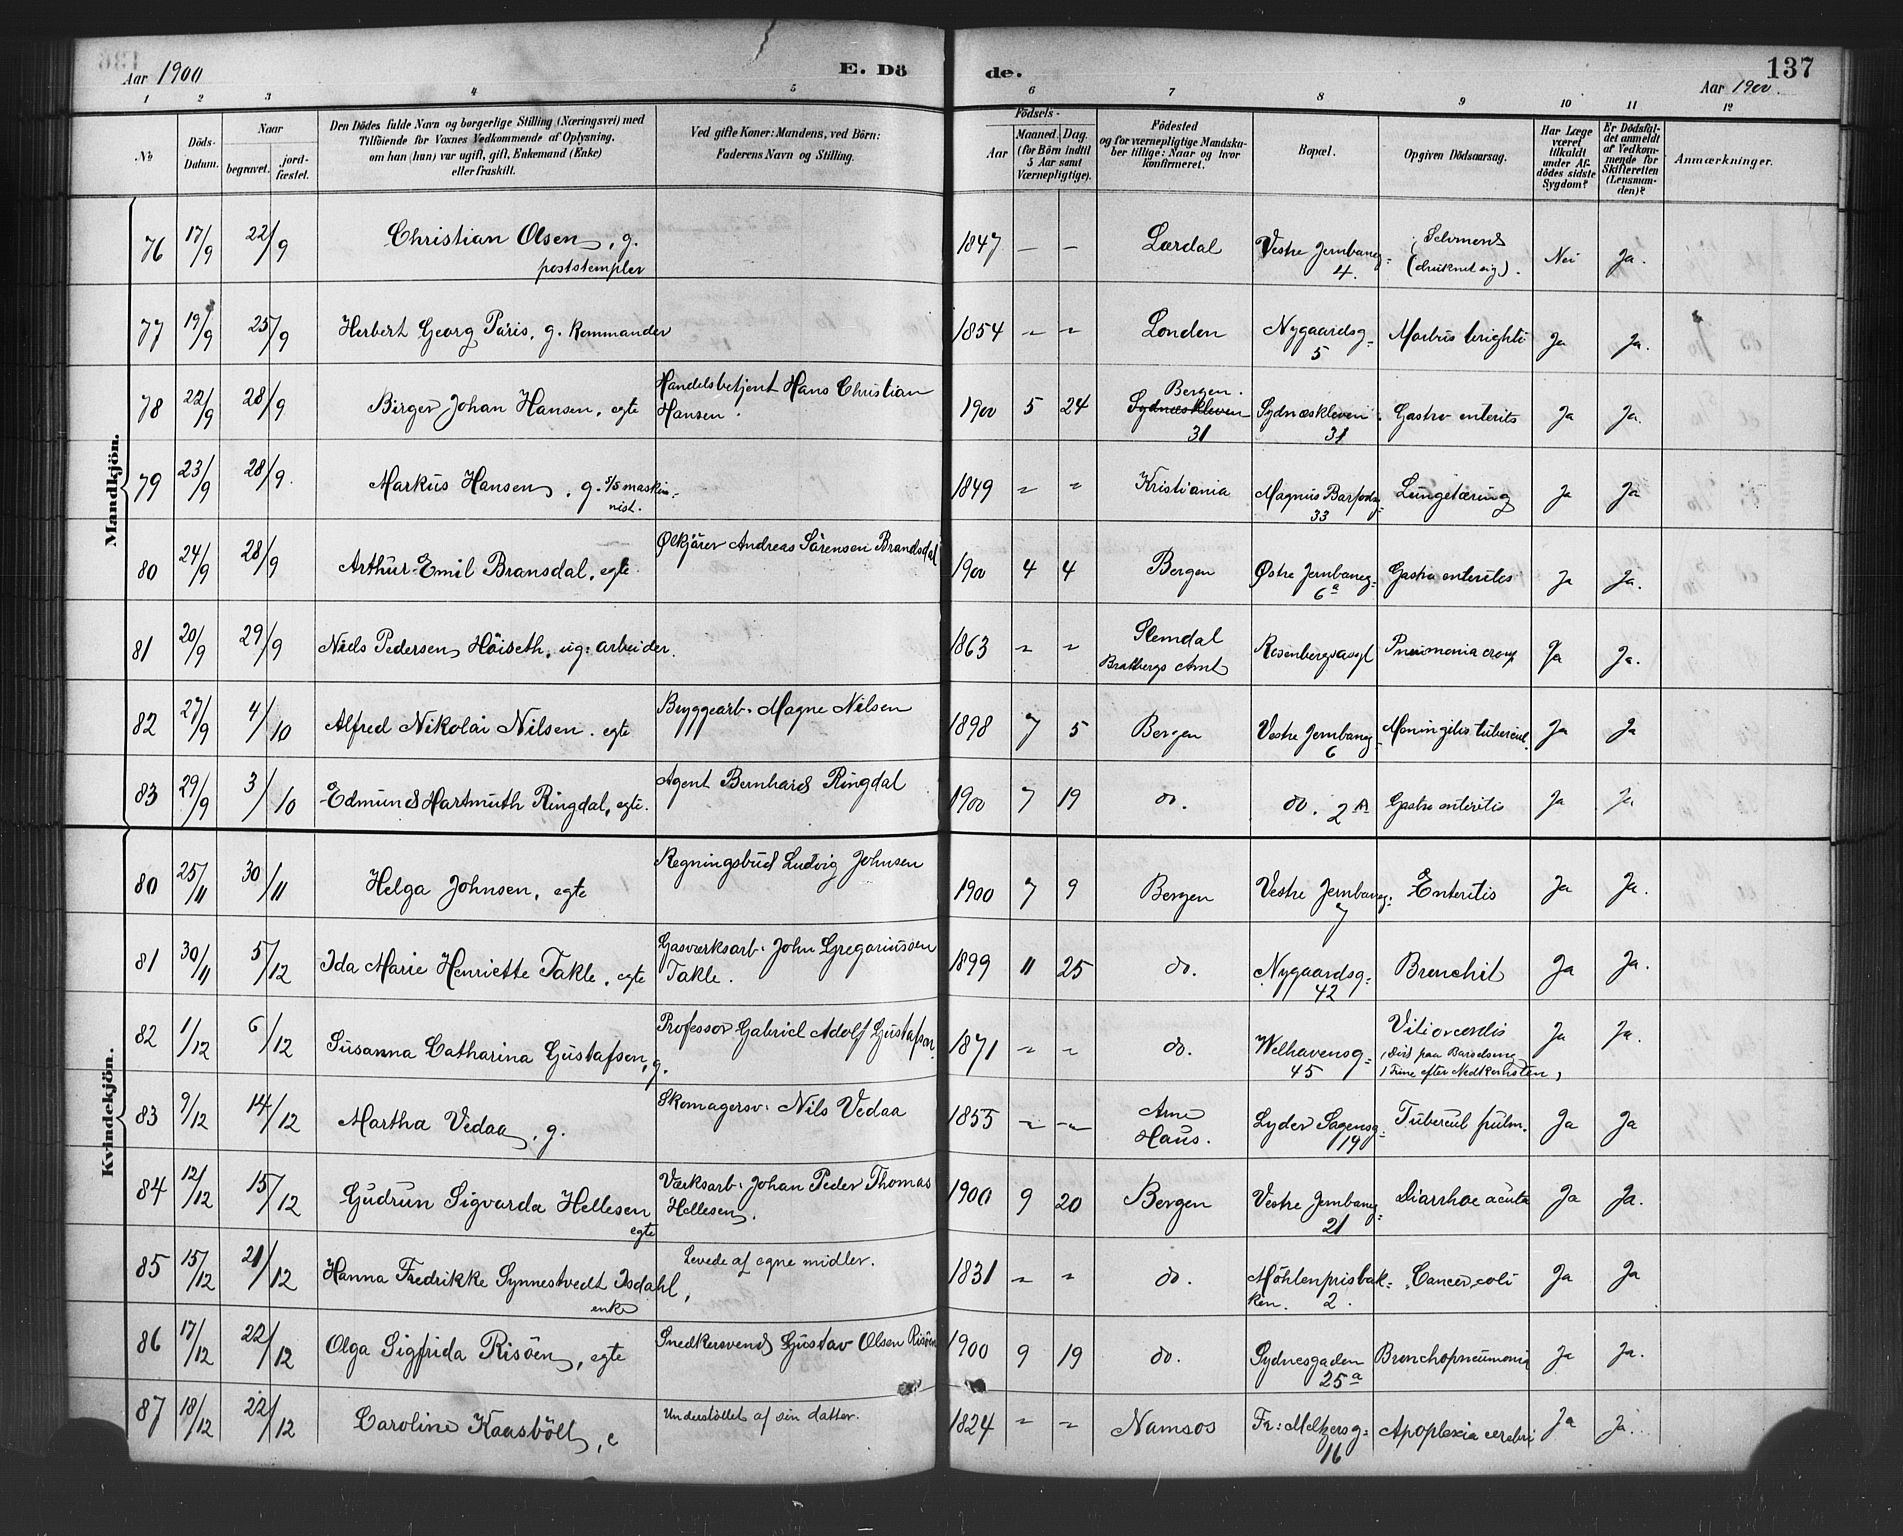 Aar 1900
E. Dö
de.
137
Aar 1900.
1 2 3 4 5 6 7 8 9 10 11 12
№
Döds-Datum.
Naar
begravet.
jord-fæstet.
Den Dödes fulde Navn og borgerlige Stilling (Næringsvei) med
Tilföiende for Voxnes Vedkommende af Oplysning.
om han (hun) var ugift, gift, Enkemand (Enke)
eller fraskilt.
Ved gifte Koner: Mandens, ved Börn:
Faderens Navn og Stilling.
Födsels-
Aar
Maaned. Dag.
(for Börn indtil
5 Aar samt
Værnepligtige).
Födested
og for værnepligtige Mandska-
ber tillige: Naar og hvor
konfirmeret.
Bopæl.
Opgiven Dödsaarsag.
Har Læge
været
tilkaldt
under Af-
dödes sidste
Sygdom?
Er Dödsfal-
det anmeldt
af Vedkom-
mende for
Skifteretten
(Lensman-
den)?
Anmærkninger.
Mandkjön.
76 17/9 22/9 Christian Olsen, g. poststempler 1847 — — Lærdal Vestre Jernbaneg: 4. (druknet sig). Nei Ja.
77 19/9 25/9 Herbert Georg Paris, g. Kommandør 1854 " " London Nygaardsg: 5 Morbus brighti Ja Ja.
78 22/9 28/9 Birger Johan Hansen, egte Handelsbetjent Hans Christian Hansen. 1900 5 24 Bergen. Sydnæskleven 31 Sydnæskleven 31 Gastro enterits Ja Ja.
79 23/9 28/9. Markus Hansen, g. s/s maskinnist. 1849 " " Kristiania Magnus Barfodsg: 33 Lungetæring Ja Ja
80 24/9 28/9 Arthur Emil Bransdal, egte Ølkjører Andreas Sörensen Brandsdal 1900 4 4 Bergen Østre Jernbaneg: 6a Gastro enteritis Ja Ja.
81 20/9 29/9 Niels Pedersen Höiseth, ug: arbeider. 1863 " " Slemdal Bratsbergs Amt Rosenbergsg Pneumonia croup Ja Ja.
82 27/9 4/10 Alfred Nikolai Nilsen. egte Bryggearb. Magne Nilsen 1898 7 5 Bergen Vestre Jernbaneg 6 Meningitis tubercul. Ja Ja
83 29/9 3/10 Edmund Hartmuth Ringdal, egte. Agent Bernhard Ringdal 1900 7 19 do. do. 2A Gastro enteritis Ja Ja
Kvindekjön.
80 25/11 30/11 Helga Johnsen, egte Regningsbud Ludvig Johnsen 1900 7 9 Bergen Vestre Jernbaneg: 7 Enteritis Ja Ja.
81 30/11 5/12 Ida Marie Henriette Takle, egte Gasværksarb. John Gregoriussen Takle. 1899 11 25 do. Nygaardsg: 42 Bronchit Ja Ja.
82 1/12 6/12 Susanna Catharina Gustafson, g. Professor Gabriel Adolf Gustafson. 1871 " " do. Welhavensg: 45 Vitio cordis (Död paa Barselseng 1 Time efter Nedkomsten) Ja Ja.
83 9/12 14/12 Martha Vedaa, g. Skomagersv: Nils Vedaa 1855 " " Arne Haus. Lyder Sagensg: 19 Tubercul pulm. Ja Ja
84 12/12 15/12 Gudrun Sigvarda Hellesen egte Værksarb. Johan Peder Thomas Hellesen. 1900 9 20 Bergen Vestre Jernbaneg: 21 Diarrhoe acuta Ja Ja.
85 15/12 21/12 Hanna Fredrikke Synnestvedt Isdahl, enke Levede af egne midler. 1831 " " do. Möhlenprisbakken. 2. Cancer coli Ja Ja
86 17/12 22/12 Olga Sigfrida Risöen, egte Snedkersvend Gustav Olsen Risöen 1900 9 19 do. Sydnesgaden 25a Bronchopneumonia Ja Ja.
87 18/12 22/12 Caroline Kaasböll, e Understöttet af sin datter. 1824 " " Namsos Fr: Meltzersg: 16 Apoplexia cerebri Ja Ja.